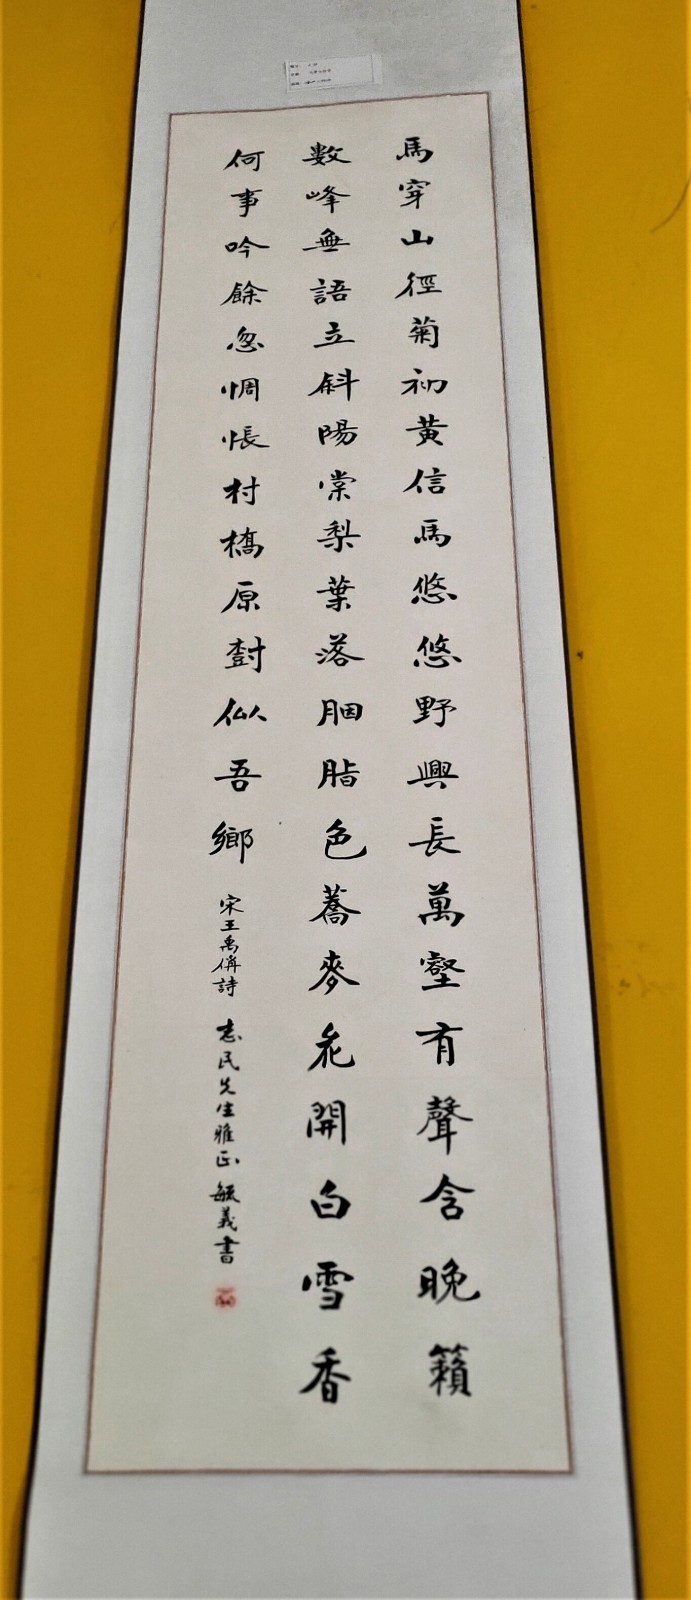 馬穿山徑菊初黃信馬悠悠野興長萬壑有聲含晚籟
數峰無語立斜陽棠梨葉落胭脂色蕎麥花開白雪香
何事吟餘忽惆悵村橋原樹似吾鄉 宋王禹偁詩 志民先生雅正 毓義書